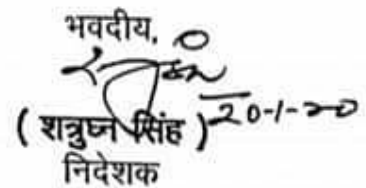 भवदीय,
( शत्रुघ्न सिंह ) 20-1-20
निदेशक